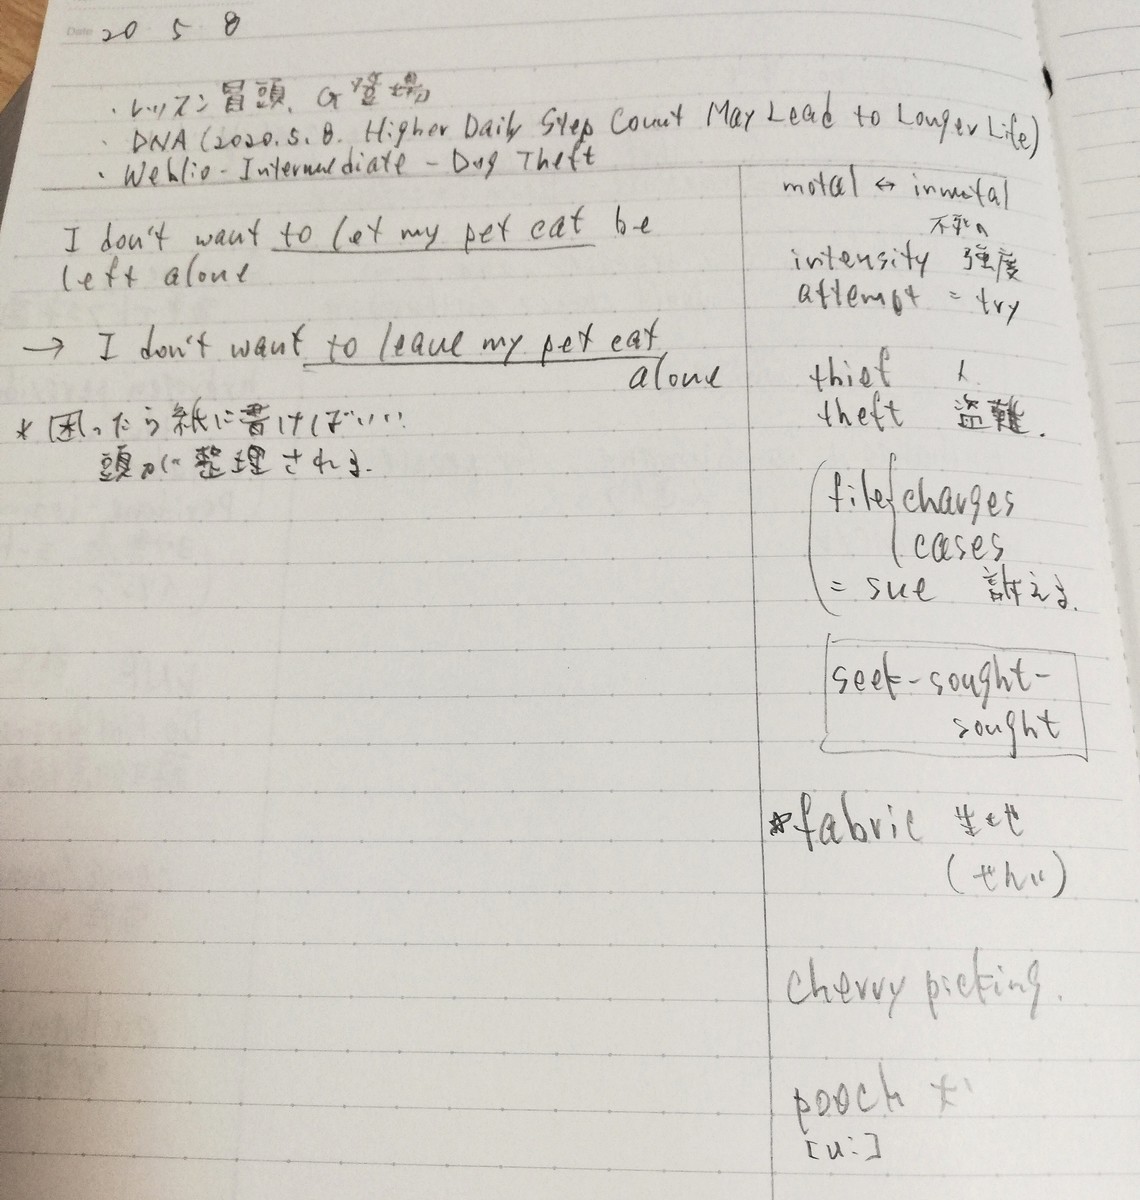 Date 20 5 8
・レッスン冒頭、G登場
・DNA (2020.5.8. Higher Daily Step Count May Lead to Longer Life)
・Weblio - Intermediate - Dog Theft
I don't want to let my pet cat be
left alone
→ I don't want to leave my pet cat
alone
* 困ったら紙に書けばいい
頭が整理される.
motal ↔ inmotal
不死の
intensity 強度
attempt = try
thief 人
theft 盗難.
file { charges
cases
= sue 訴える.
seek - sought -
sought
*fabric 生地
(せんい)
cherry picking.
pooch 犬
[u:]